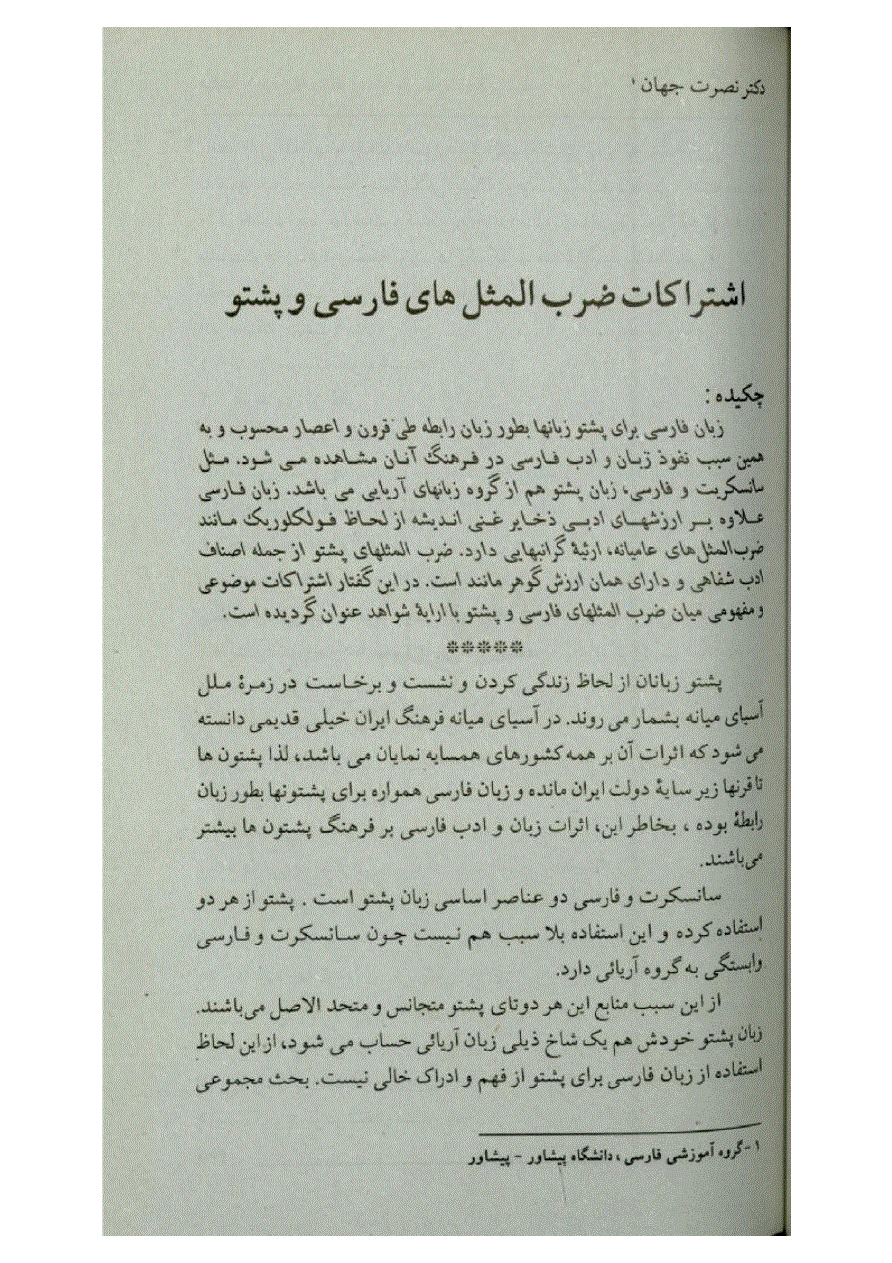 دکتر نصرت جهان ۱
اشتراکات ضرب المثل های فارسی و پشتو
چکیده :
زبان فارسی برای پشتو زبانها بطور زبان رابطه طی قرون و اعصار محسوب و به
همین سبب نفوذ زبان و ادب فارسی در فرهنگ آنان مشاهده می شود. مثل
سانسکریت و فارسی، زبان پشتو هم از گروه زبانهای آریایی می باشد. زبان فارسی
علاوه بر ارزشهای ادبی ذخایر غنی اندیشه از لحاظ فولکلوریک مانند
ضرب‌المثل‌های عامیانه، ارثیۀ گرانبهایی دارد. ضرب المثلهای پشتو از جمله اصناف
ادب شفاهی و دارای همان ارزش گوهر مانند است. در این گفتار اشتراکات موضوعی
و مفهومی میان ضرب المثلهای فارسی و پشتو با ارایۀ شواهد عنوان گردیده است.
*****
پشتو زبانان از لحاظ زندگی کردن و نشست و برخاست در زمرۀ ملل
آسیای میانه بشمار می روند. در آسیای میانه فرهنگ ایران خیلی قدیمی دانسته
می شود که اثرات آن بر همه کشورهای همسایه نمایان می باشد، لذا پشتون ها
تا قرنها زیر سایۀ دولت ایران مانده و زبان فارسی همواره برای پشتونها بطور زبان
رابطۀ بوده ، بخاطر این، اثرات زبان و ادب فارسی بر فرهنگ پشتون ها بیشتر
می‌باشند.
سانسکرت و فارسی دو عناصر اساسی زبان پشتو است . پشتو از هر دو
استفاده کرده و این استفاده بلا سبب هم نیست چون سانسکرت و فارسی
وابستگی به گروه آریائی دارد.
از این سبب منابع این هر دوتای پشتو متجانس و متحد الاصل می‌باشند.
زبان پشتو خودش هم یک شاخ ذیلی زبان آریائی حساب می شود، از این لحاظ
استفاده از زبان فارسی برای پشتو از فهم و ادراک خالی نیست. بحث مجموعی
۱-گروه آموزشی فارسی ، دانشگاه پیشاور - پیشاور